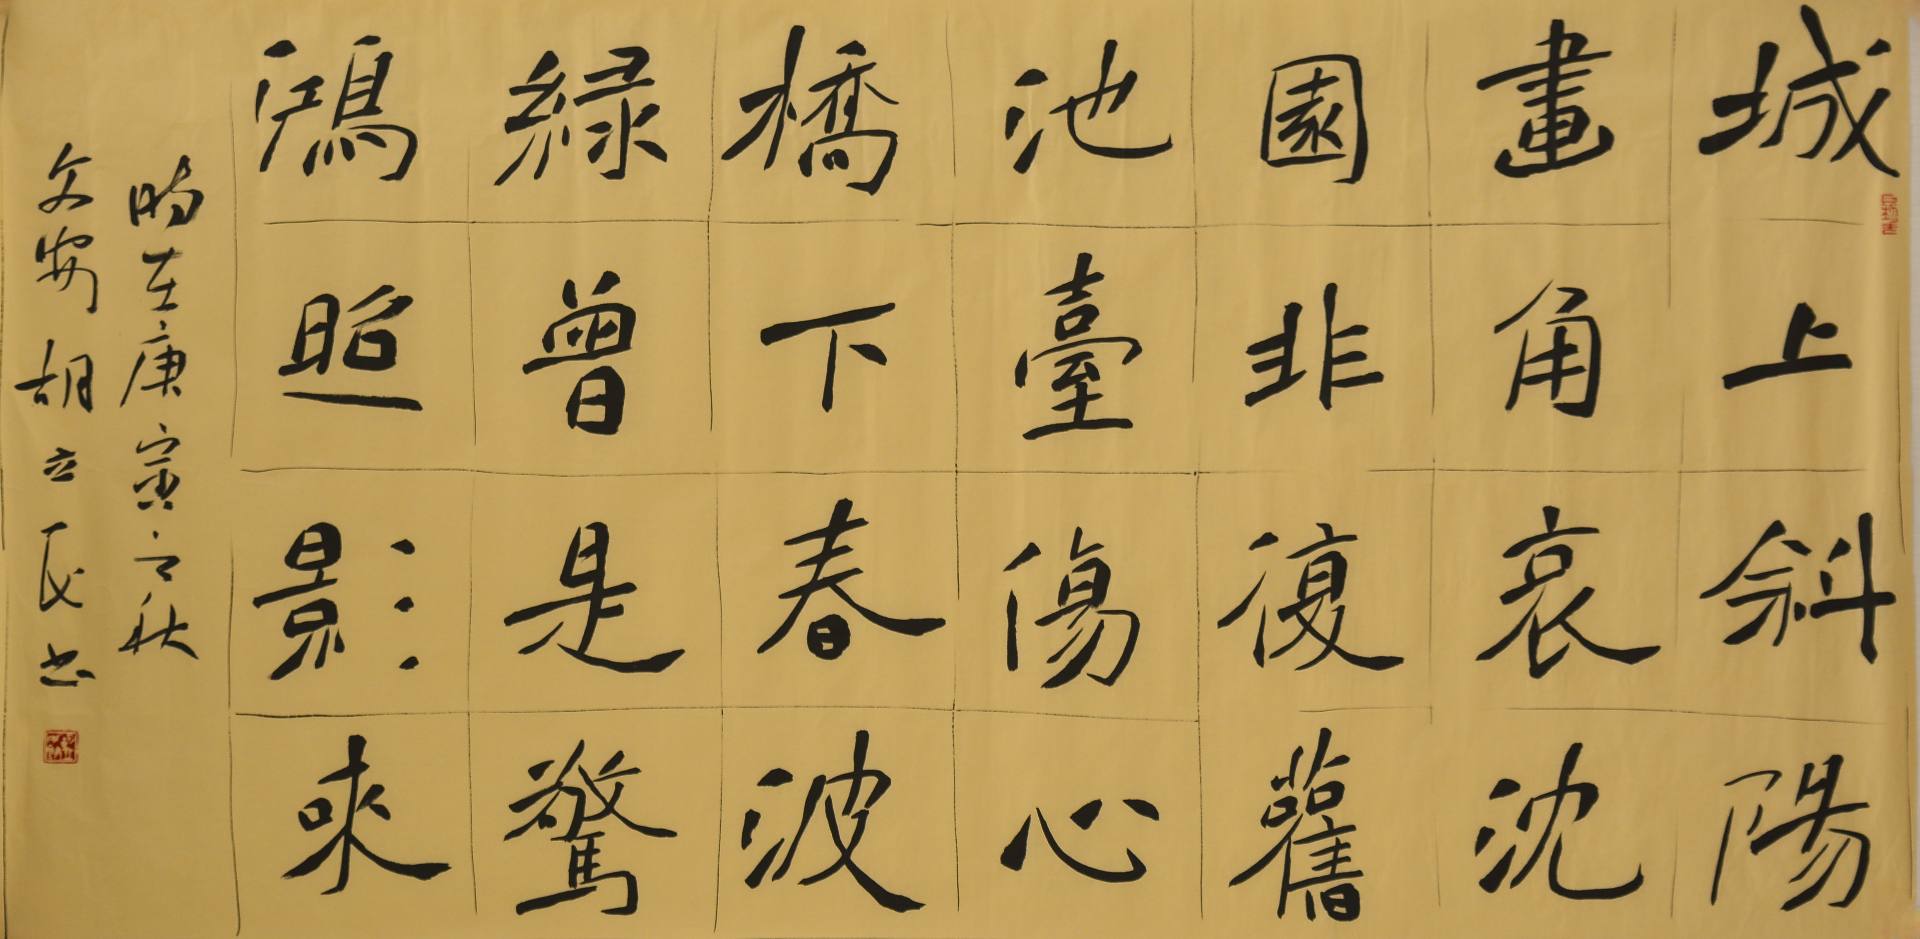 城上斜陽
畫角哀沈
園非復舊
池臺傷心
橋下春波
緑曾是驚
鴻照影來
時在庚寅之秋
文安胡立民书